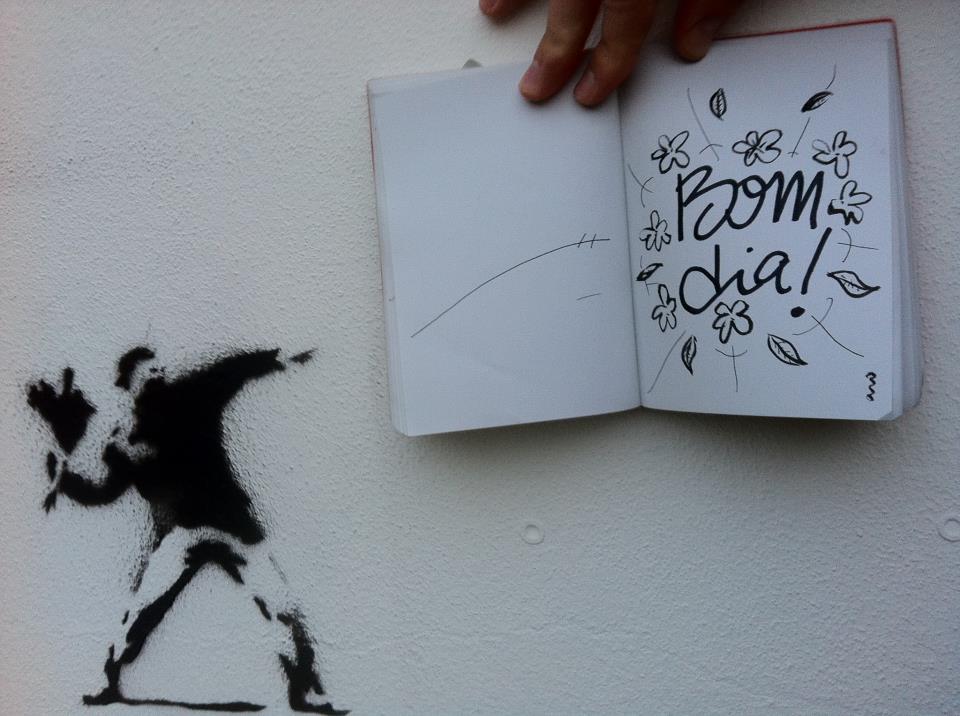 Bom
dia!